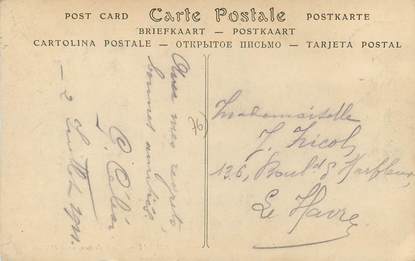 POST CARD Carte Postale POSTKARTE
BRIEFKAART — POSTKAART
CARTOLINA POSTALE — ОТКРЫТОЕ ПИСЬМО — TARJETA POSTAL
Avec mes regrets,
bonnes amitiés.
2 Juillet
76
Mademoiselle
J. Nicol,
136, Boulᵈ d'Harfleur,
Le Havre